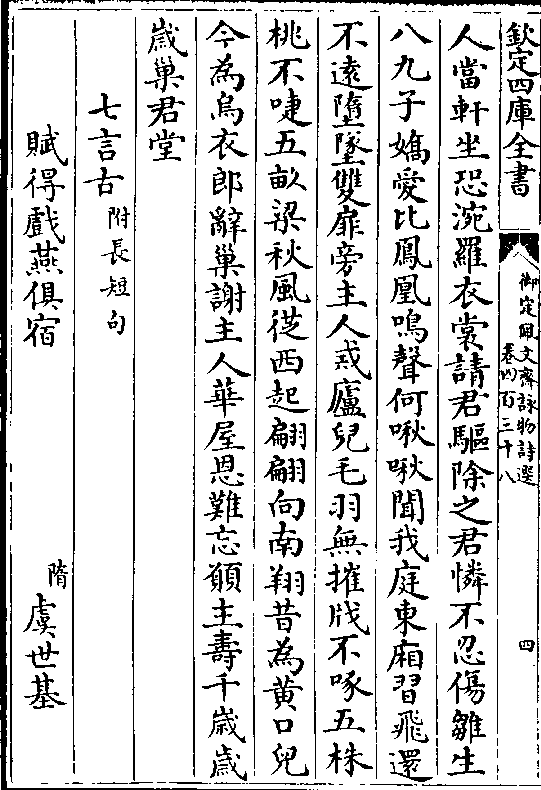 欽定四庫全書
御定佩文齋詠物詩選
卷四百三十八
四
人當軒坐恐涴羅衣裳請君驅除之君憐不忍傷雛生
八九子嬌愛比鳳凰鳴聲何啾啾聞我庭東廂習飛還
不遠墮墜雙扉旁主人戒廬兒毛羽無摧戕不啄五株
桃不啑五畝粱秋風從西起翩翩向南翔昔為黃口兒
今為烏衣郎辭巢謝主人華屋恩難忘願主壽千歲歲
歲巢君堂
七言古附長短句
賦得戲燕俱宿
隋 虞世基